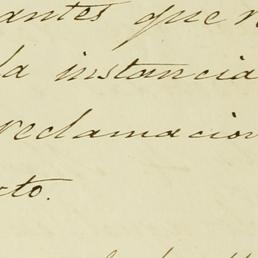 antes que
la instancia
reclamacion
cto.